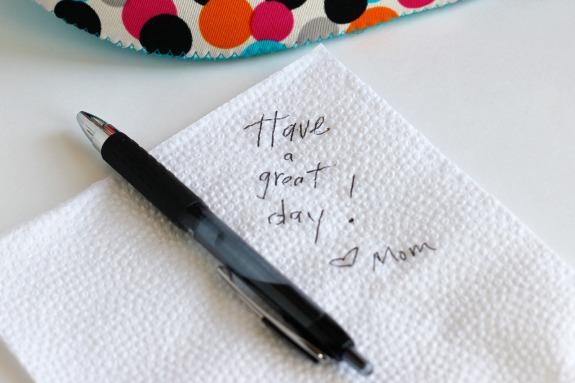 Have
a
great
day!
♡ Mom